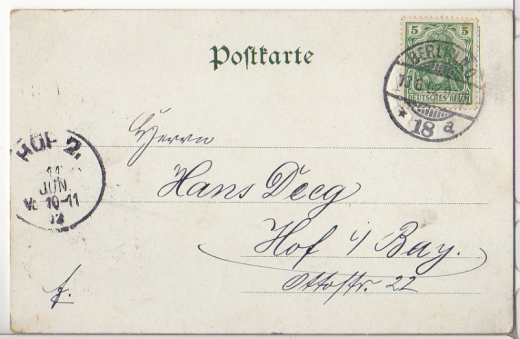 Postkarte
5 5
DEUTSCHES REICH
BERLIN
18 a
HOF 2.
11
JUN.
10-11
02
Herrn
Hans Deeg
Hof i/Bay.
Ottostr. 22
f.